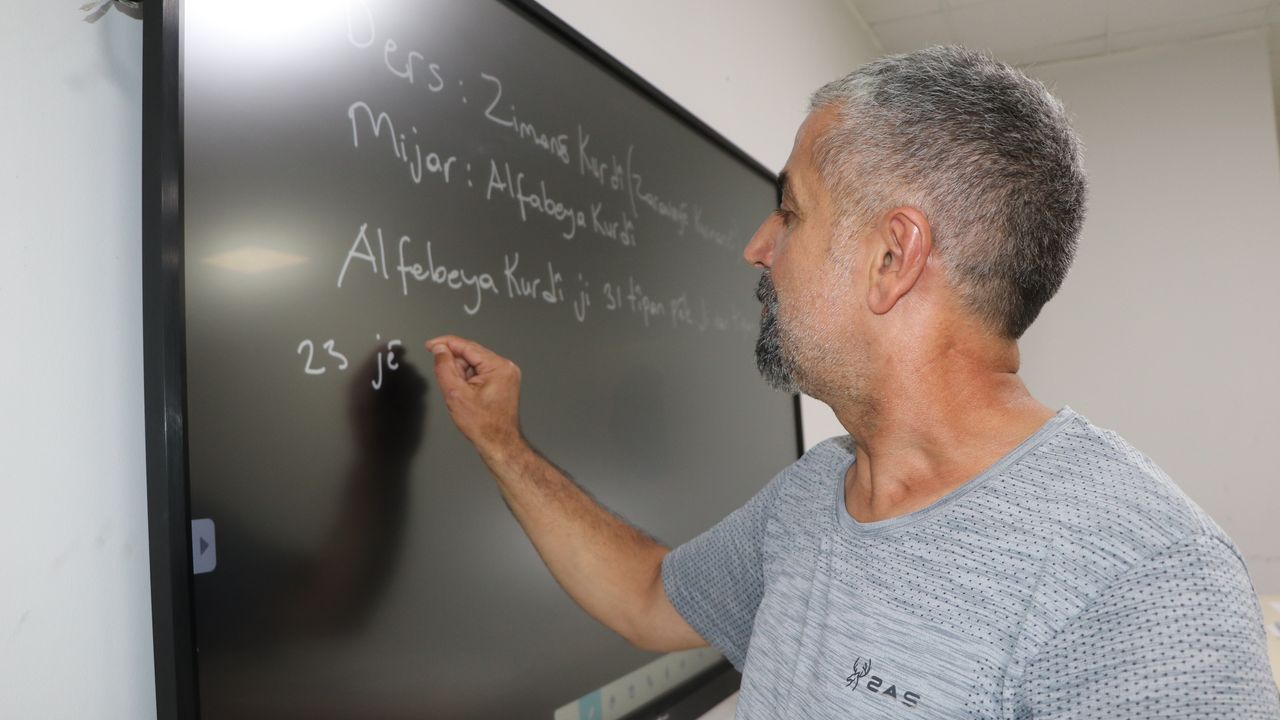 Ders : Zimanê Kurdî (Zaravayê Kurmancî
Mijar : Alfabeya Kurdî
Alfebeya Kurdî ji 31 tîpan pêk
23 jê
2AS